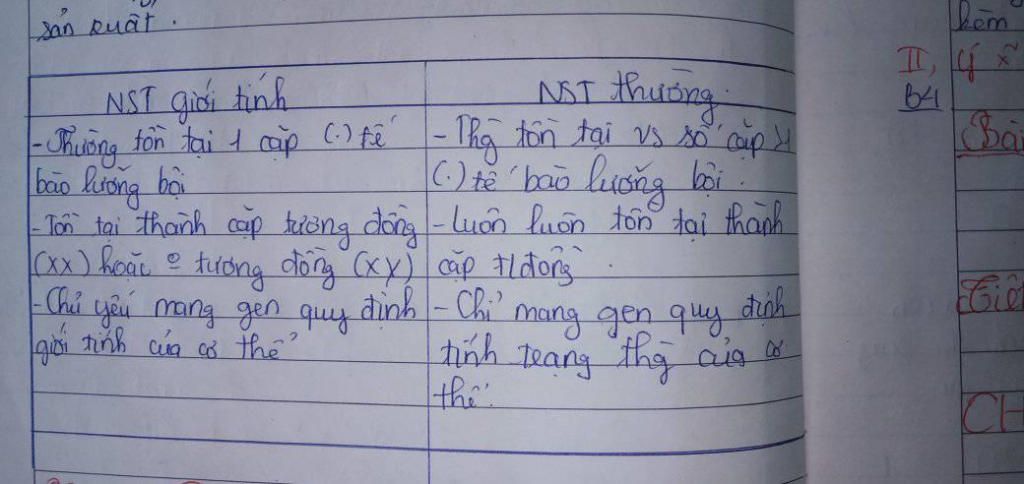 sản xuất.
NST giới tính
- Thường tồn tại 1 cặp (.) tế
bào lưỡng bội
- Tồn tại thành cặp tương đồng
(XX) hoặc o tương đồng (XY)
- Chủ yếu mang gen quy định
giới tính của cơ thể
NST thường.
- Thg tồn tại vs số cặp >1
(.) tế bào lưỡng bội.
- Luôn luôn tồn tại thành
cặp t/đồng.
- Chỉ mang gen quy định
tính trạng thg của cơ
thể.
II,
B4
kèm
ý
Bài
CH